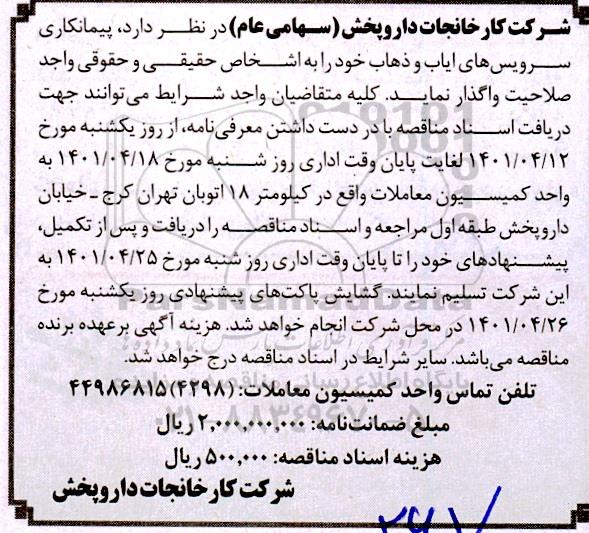 شرکت کارخانجات داروپخش (سهامی عام) در نظر دارد، پیمانکاری
سرویس‌های ایاب و ذهاب خود را به اشخاص حقیقی و حقوقی واجد
صلاحیت واگذار نماید. کلیه متقاضیان واجد شرایط می‌توانند جهت
دریافت اسناد مناقصه با در دست داشتن معرفی‌نامه، از روز یکشنبه مورخ
۱۴۰۱/۰۴/۱۲ لغایت پایان وقت اداری روز شنبه مورخ ۱۴۰۱/۰۴/۱۸ به
واحد کمیسیون معاملات واقع در کیلومتر ۱۸ اتوبان تهران کرج ـ خیابان
داروپخش طبقه اول مراجعه و اسناد مناقصه را دریافت و پس از تکمیل،
پیشنهادهای خود را تا پایان وقت اداری روز شنبه مورخ ۱۴۰۱/۰۴/۲۵ به
این شرکت تسلیم نمایند. گشایش پاکت‌های پیشنهادی روز یکشنبه مورخ
۱۴۰۱/۰۴/۲۶ در محل شرکت انجام خواهد شد. هزینه آگهی برعهده برنده
مناقصه می‌باشد. سایر شرایط در اسناد مناقصه درج خواهد شد.
تلفن تماس واحد کمیسیون معاملات: (۴۲۹۸) ۴۴۹۸۶۸۱۵
مبلغ ضمانت‌نامه: ۲,۰۰۰,۰۰۰,۰۰۰ ریال
هزینه اسناد مناقصه: ۵۰۰,۰۰۰ ریال
شرکت کارخانجات داروپخش
ParsNamadData